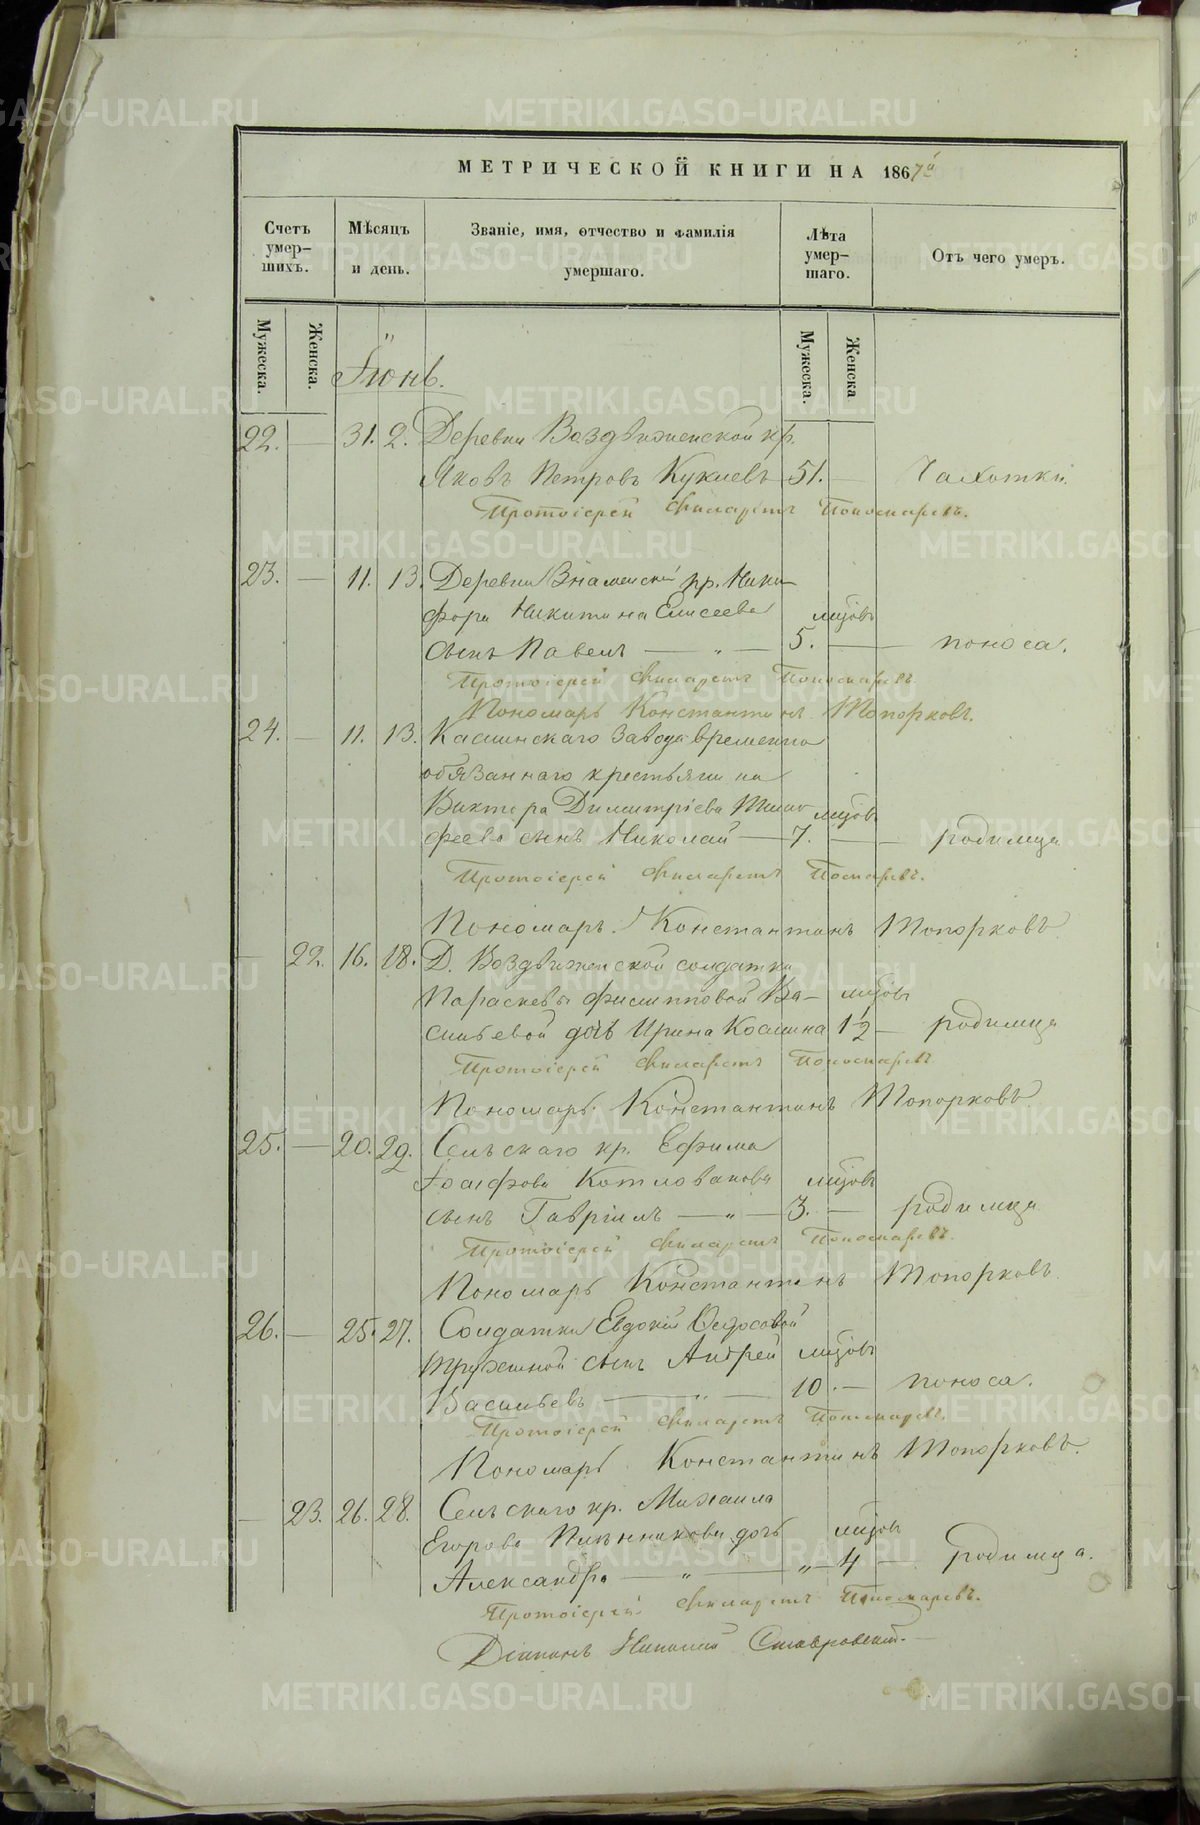 МЕТРИЧЕСКОЙ КНИГИ НА 1867й
Счетъ умер-шихъ. Мѣсяцъ и день. Званіе, имя, отчество и фамилія умершаго. Лѣта умер-шаго. Отъ чего умеръ.
Мужеска. Женска. Мужеска. Женска
Іюнь.
22. — 31. 2. Деревни Воздвиженской кр.
Яковъ Петровъ Куклевъ 51. — Чахотки.
Протоіерей Филаретъ Пономаревъ.
23. — 11. 13. Деревни Знаменской кр. Ники-
фора Никитина Елисеева мцовъ
сынъ Павелъ — „ — 5. — поноса.
Протоіерей Филаретъ Пономаревъ
Пономарь Константинъ Топорковъ.
24. — 11. 13. Каслинскаго завода временно
обязаннаго крестьянина
Виктора Димитріева Тимо- мцовъ
феева сынъ Николай — 7. — родимца
Протоіерей Филаретъ Помаревъ.
Пономарь Константинъ Топорковъ
— 22. 16. 18. Д. Воздвиженской солдатки
Параскевы Филипповой Ва- мцовъ
сильевой дочь Ирина Космина 1½ — родимца
Протоіерей Филаретъ Пономаревъ
Пономарь Константинъ Топорковъ
25. — 20. 29. Сельскаго кр. Ефима
Іоасфова Котловanова мцовъ
сынъ Гавріилъ — „ — 3. — родимца
Протоіерей Филаретъ Пономаревъ.
Пономарь Константинъ Топорковъ.
26. — 25. 27. Солдатки Евдокіи Ѳедосовой
сынъ Андрей мцовъ
Васильевъ — „ — 10. — поноса.
Протоіерей Филаретъ Пономаревъ.
Пономарь Константинъ Топорковъ.
— 23. 26. 28. Сельскаго кр. Михаила
Егорова дочь мцовъ
Александра — „ — „ — 4 — родимца.
Протоіерей Филаретъ Пономаревъ.
Діаконъ Николай Ставровскій.
METRIKI.GASO-URAL.RU